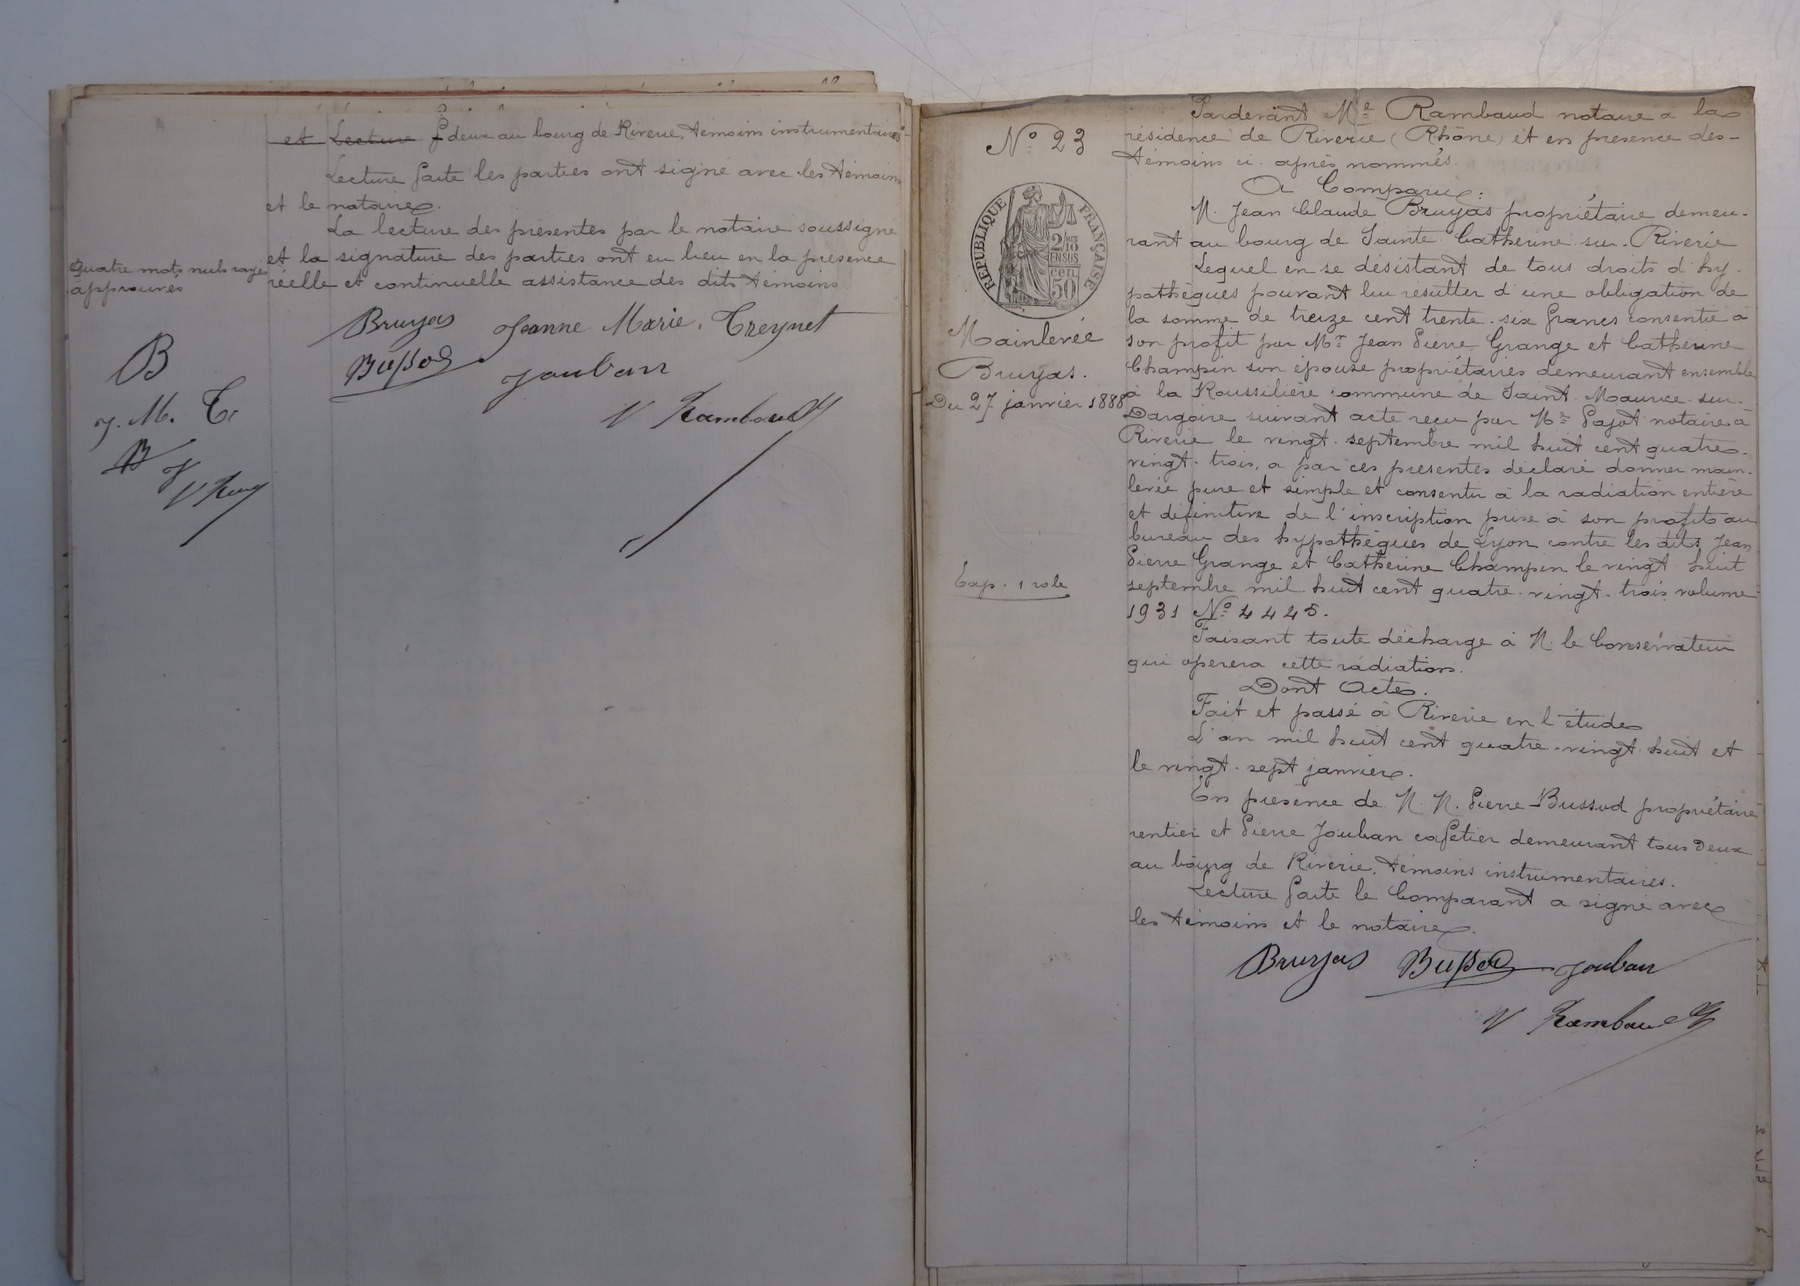 et Lecture deux au bourg de Riverie, témoins instrumentaires
Lecture faite les parties ont signé avec les témoins
et le notaire.
La lecture des présentes par le notaire soussigné
et la signature des parties ont eu lieu en la présence
réelle et continuelle assistance des dits témoins
Quatre mots nuls rayés
approuvés
Bruyas Jeanne Marie Treynet
Bussod Jouban
V Rambaud
B
J. M. T
B J
V Ram
N° 23
RÉPUBLIQUE FRANÇAISE
2/10
EN SUS
50 CEN
Mainlevée
Bruyas.
Du 27 janvier 1888
Exp. 1 role
Pardevant Me Rambaud notaire à la
résidence de Riverie (Rhône) et en présence des
témoins ci-après nommés
A Comparu:
M. Jean Claude Bruyas propriétaire demeu-
rant au bourg de Sainte Catherine-sur-Riverie
Lequel en se désistant de tous droits d'hy-
pothèques pouvant lui résulter d'une obligation de
la somme de treize cent trente-six francs consentie à
son profit par Mr Jean Pierre Grange et Catherine
Champin son épouse propriétaires demeurant ensemble
à la Roussilière commune de Saint-Maurice-sur-
Dargoire suivant acte reçu par Me Pajot notaire à
Riverie le vingt septembre mil huit cent quatre-
vingt-trois, a par ces présentes déclaré donner main-
levée pure et simple et consentir à la radiation entière
et définitive de l'inscription prise à son profit au
bureau des hypothèques de Lyon contre les dits Jean
Pierre Grange et Catherine Champin le vingt-huit
septembre mil huit cent quatre-vingt-trois volume
1931 N° 4445.
Faisant toute décharge à M. le Conservateur
qui opèrera cette radiation.
Dont Acte.
Fait et passé à Riverie en l'étude
L'an mil huit cent quatre-vingt-huit et
le vingt-sept janvier.
En présence de M. M. Pierre Bussod propriétaire
rentier et Pierre Jouban cafetier demeurant tous deux
au bourg de Riverie, témoins instrumentaires.
Lecture faite le Comparant a signé avec
les témoins et le notaire.
Bruyas Bussod Jouban
V Rambaud